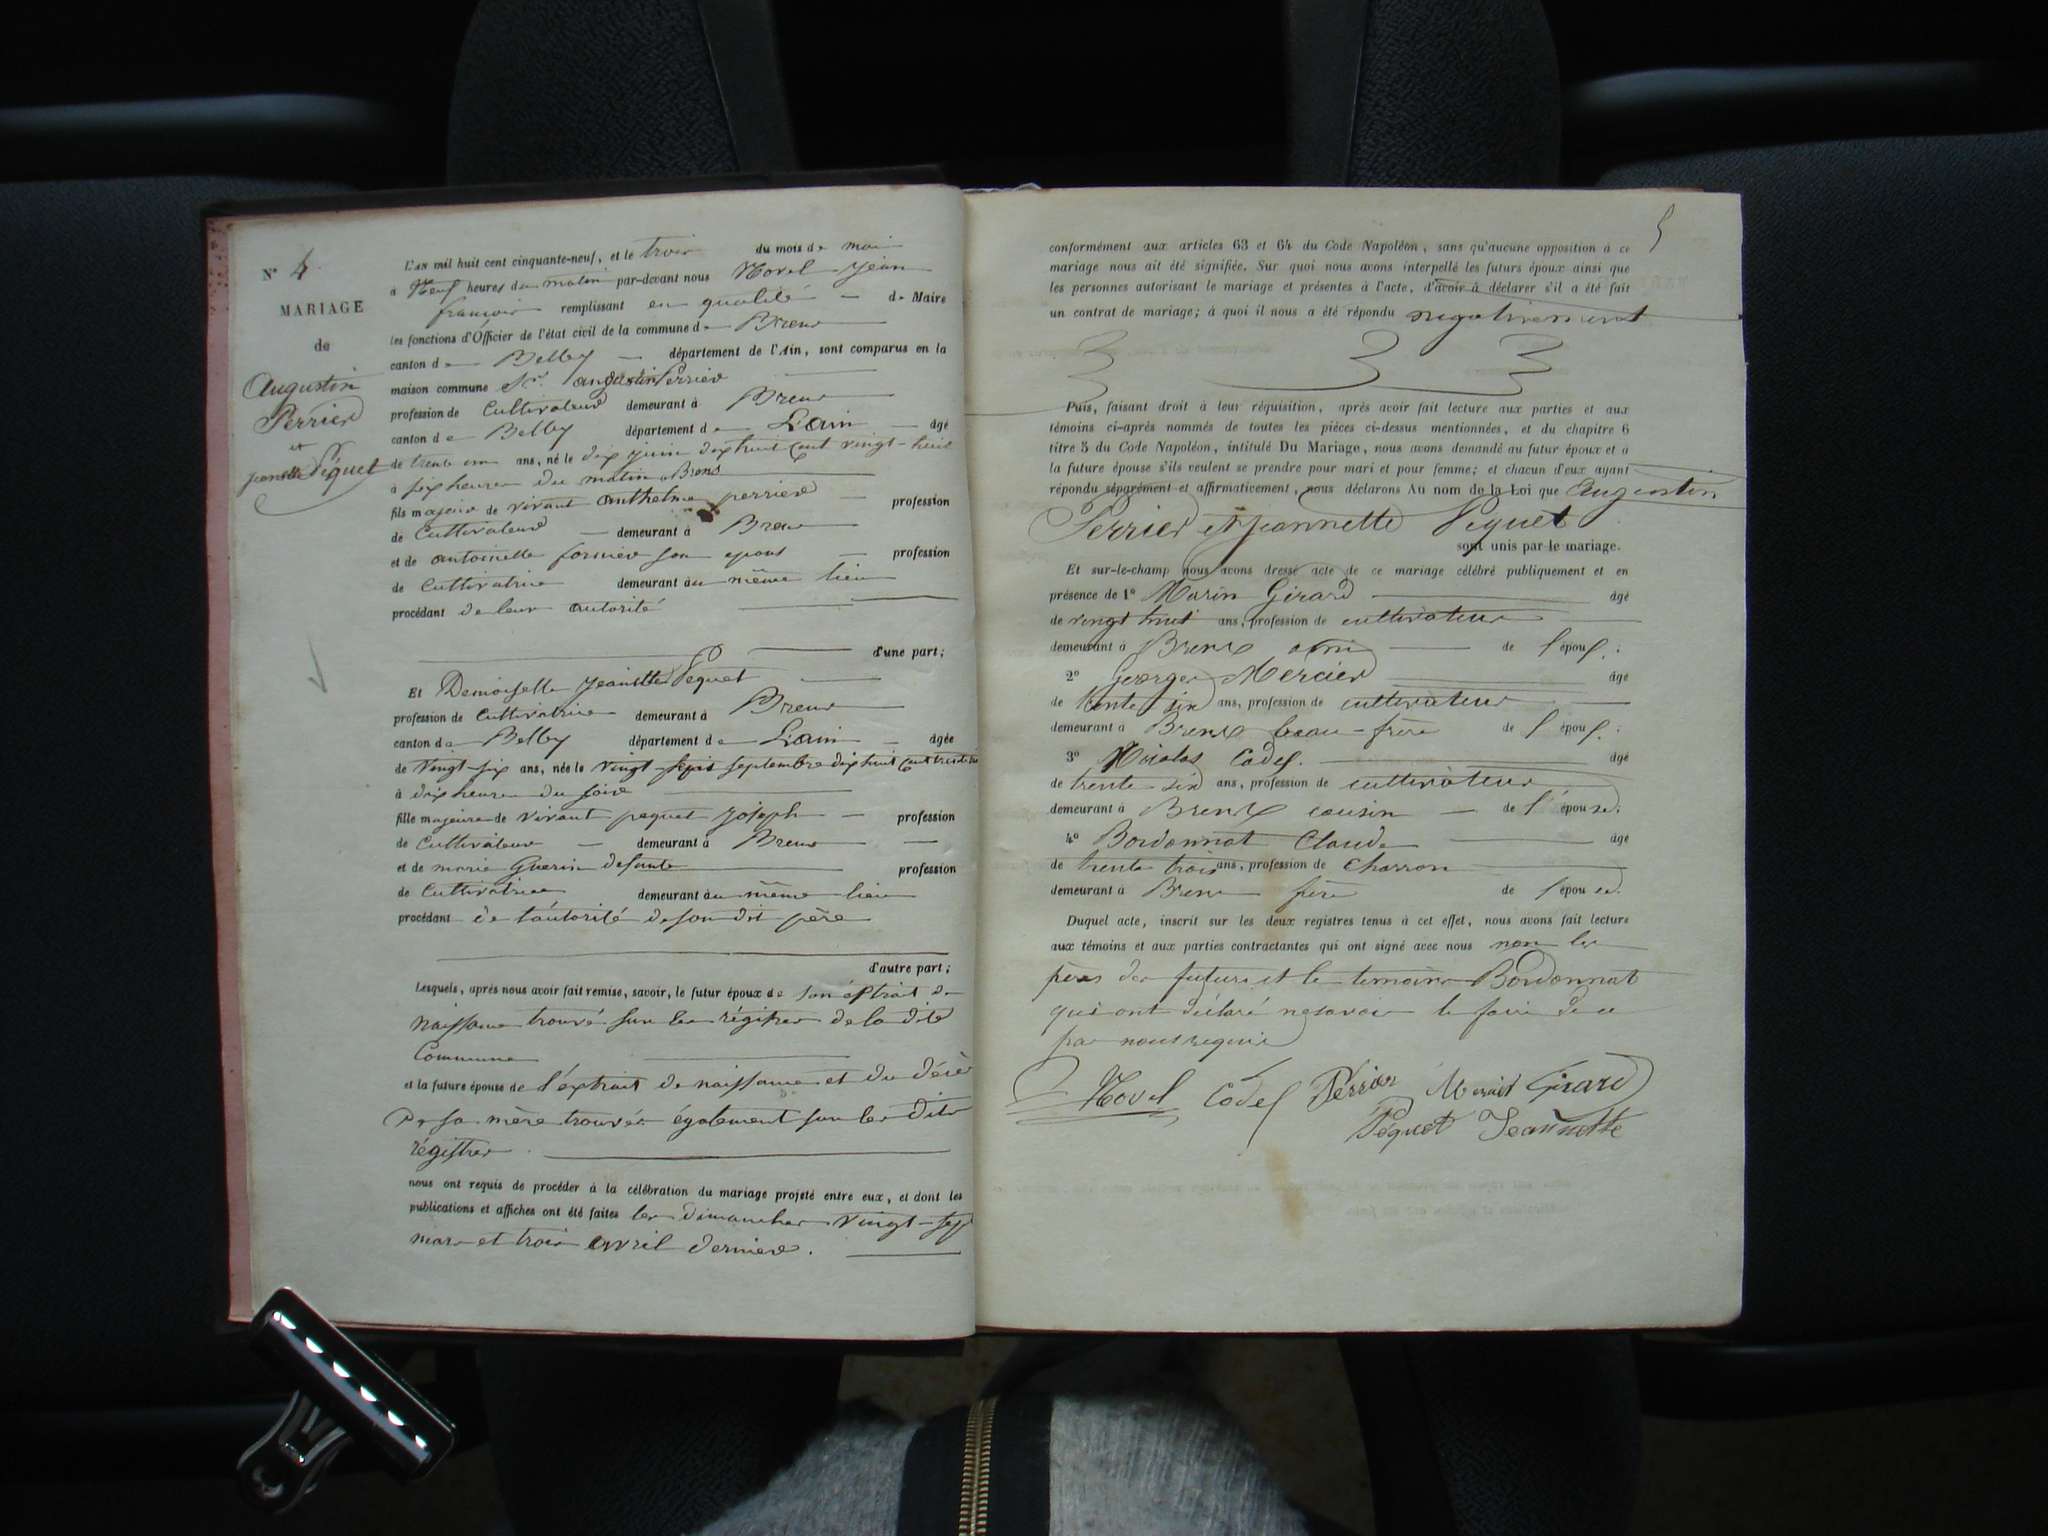 N° 4
MARIAGE
de
Augustin
Perrier
et
Jeannette Péquet
L'AN mil huit cent cinquante-neuf, et le trois du mois de mai
à Neuf heures du matin par-devant nous Hovel Jean
françois remplissant en qualité de Maire
les fonctions d'Officier de l'état civil de la commune de Brens
canton de Belley département de l'Ain, sont comparus en la
maison commune Sr. augustin Perrier
profession de Cultivateur demeurant à Brens
canton de Belley département de L'ain âgé
de trente un ans, né le dix juin dix huit cent vingt-huit
à six heures du matin à Brens
fils majeur de vivant anthelme perrier profession
de Cultivateur demeurant à Brens
et de antoinette fornier son epous profession
de Cultivatrice demeurant au même lieu
procédant de leur autorité
d'une part;
Et Demoiselle Jeannette Pequet
profession de Cultivatrice demeurant à Brens
canton de Belley département de L'ain âgée
de Vingt-six ans, née le vingt septembre dix huit cent trente
à dix heures du soir
fille majeure de vivant pequet joseph profession
de Cultivateur demeurant à Brens
et de marie Guerin defunte profession
de Cultivatrice demeurant au même lieu
procédant de l'autorité de son dit père
d'autre part;
Lesquels, après nous avoir fait remise, savoir, le futur époux de son extrait de
naissance trouvé sur les régistres de la dite
Commune
et la future épouse de l'extrait de naissance et du décè
De sa mère trouvés également sur les dits
régistres
nous ont requis de procéder à la célébration du mariage projeté entre eux, et dont les
publications et affiches ont été faites les dimanches vingt-sept
mars et trois avril derniers.
5
conformément aux articles 63 et 64 du Code Napoléon, sans qu'aucune opposition à ce
mariage nous ait été signifiée. Sur quoi nous avons interpellé les futurs époux ainsi que
les personnes autorisant le mariage et présentes à l'acte, d'avoir à déclarer s'il a été fait
un contrat de mariage; à quoi il nous a été répondu négativement
Puis, faisant droit à leur réquisition, après avoir fait lecture aux parties et aux
témoins ci-après nommés de toutes les pièces ci-dessus mentionnées, et du chapitre 6
titre 5 du Code Napoléon, intitulé Du Mariage, nous avons demandé au futur époux et à
la future épouse s'ils veulent se prendre pour mari et pour femme; et chacun d'eux ayant
répondu séparément et affirmativement, nous déclarons Au nom de la Loi que Augustin
Perrier et Jeannette Pequet
sont unis par le mariage.
Et sur-le-champ nous avons dressé acte de ce mariage célébré publiquement et en
présence de 1° Marin Girard âgé
de vingt huit ans, profession de cultivateur
demeurant à Brens ami de l'époux.
2° Georges Mercier âgé
de trente six ans, profession de cultivateur
demeurant à Brens beau-frère de l'époux.
3° Nicolas Codex. âgé
de trente six ans, profession de cultivateur
demeurant à Brens cousin de l'épouse.
4° Bordonnat Claude âgé
de trente trois ans, profession de Charron
demeurant à Brens frère de l'épouse.
Duquel acte, inscrit sur les deux registres tenus à cet effet, nous avons fait lecture
aux témoins et aux parties contractantes qui ont signé avec nous non les
pères des futurs et le temoins Bordonnat
qui ont déclaré ne savoir le faire de ce
par nous requis
Hovel Codex Perrier Mercier Girard
Péquet Jeannette